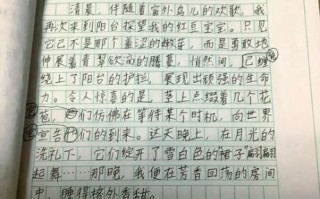 清晨,伴随着窗外鸟儿的欢歌,我
再次来到阳台探望我的红豆宝宝。只见
它已不是那个羞涩的嫩芽,而是勇敢地
伸展着青翠欲滴的腰肢,悄然间,已缠
绕上了阳台的护栏,展现出顽强的生命
力。令人惊喜的是,茎上点缀着几个花
苞,它们仿佛在等待某个时机,向世界
宣告它们的到来。这天晚上,在月光的
洗礼下,它们绽开了雪白色的"裙子"翩翩
起舞……那晚,我便在芳香回荡的房间
中,睡得格外香甜。